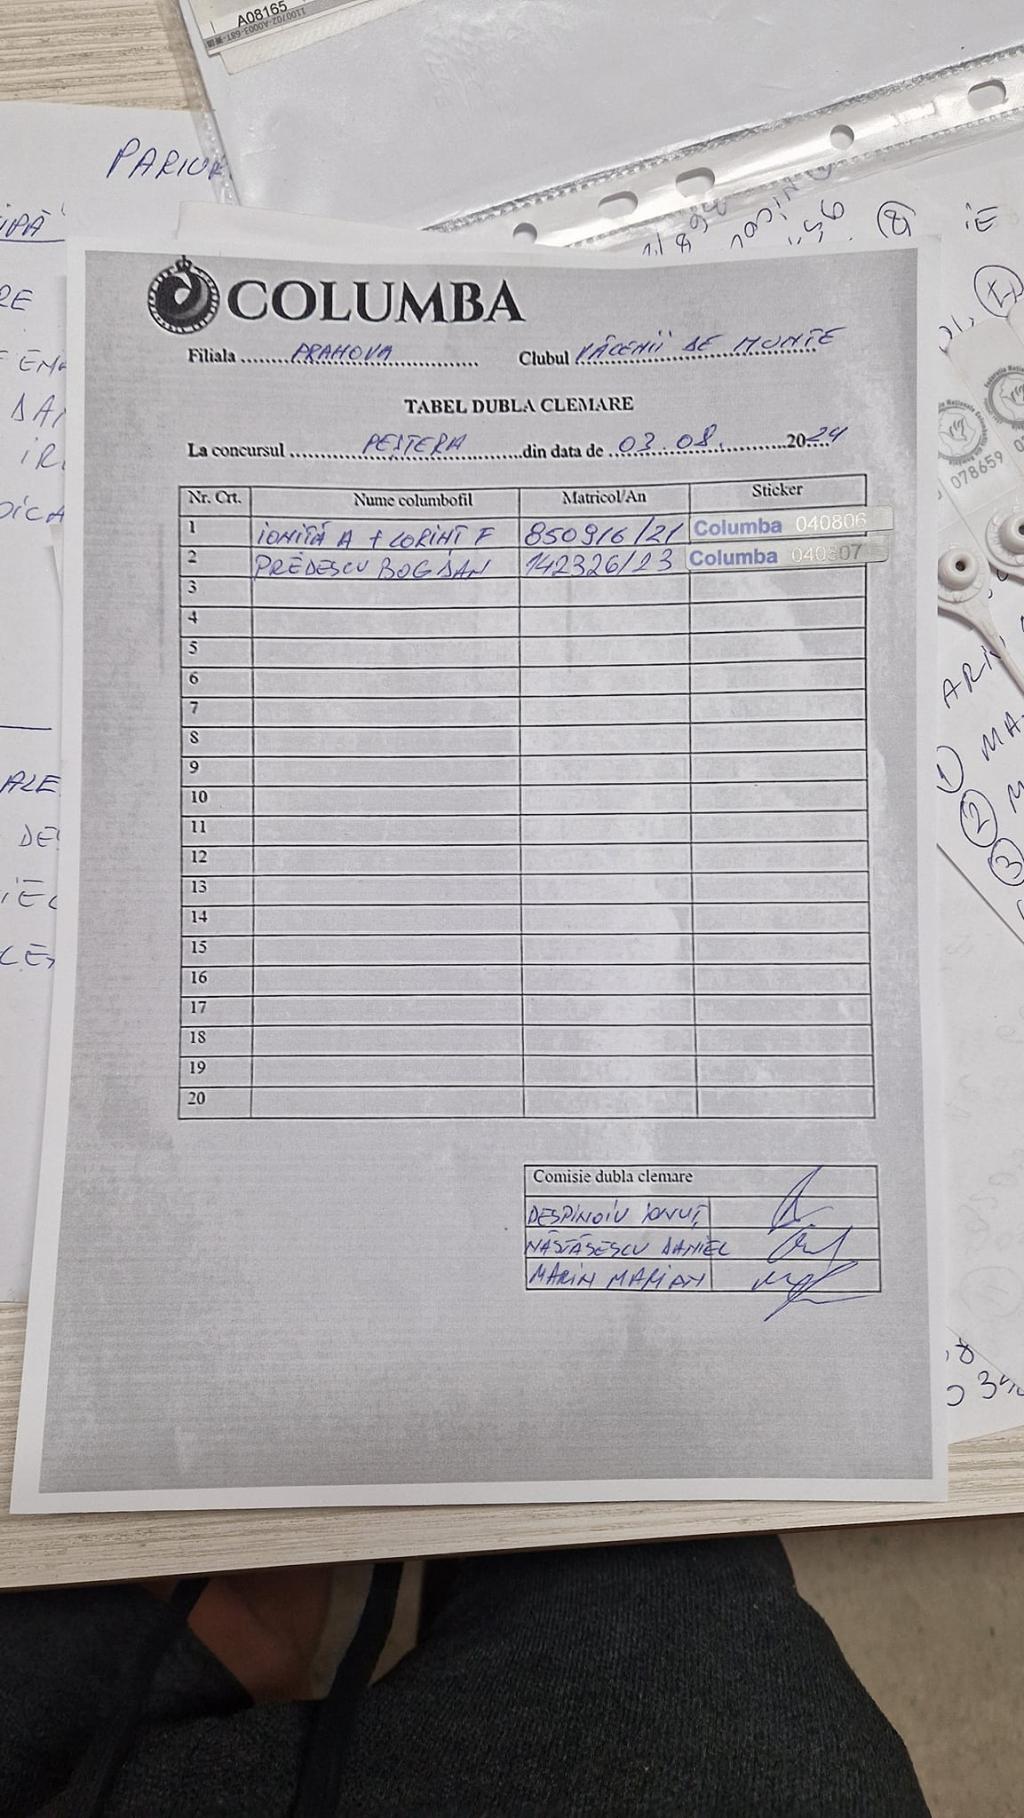 A08165
1100702-A0003-68T
PARIUR
RE
DAI
ALE
COLUMBA
Filiala PRAHOVA Clubul VĂLENII DE MUNTE
TABEL DUBLA CLEMARE
La concursul PEȘTERA din data de 03.08. 2024
Nr. Crt. Nume columbofil Matricol/An Sticker
1 IONIȚĂ A + LORINT F 850916/21 Columba 040806
2 PREDESCU BOGDAN 142326/23 Columba 040807
3
4
5
6
7
8
9
10
11
12
13
14
15
16
17
18
19
20
Comisie dubla clemare
DESPINOIU IONUȚ
NĂSTĂSESCU DANIEL
MARIN MARIAN
078659
1
2
3